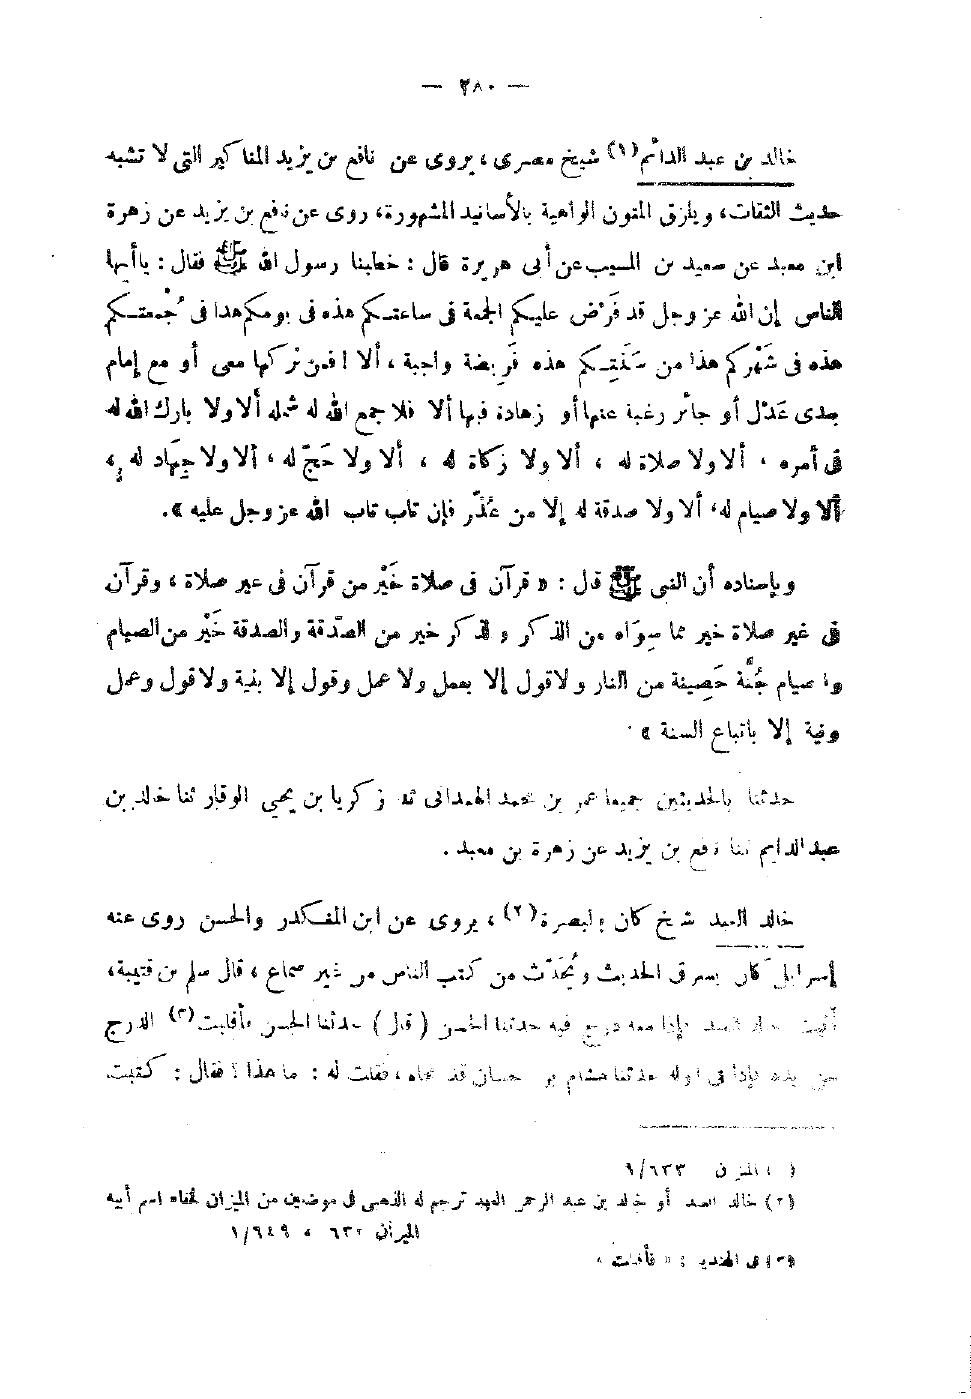 — ٢٨٠ —
خالد بن عبد الدائم(١) شيخ مصرى، يروى عن نافع بن يزيد المناكير التى لا تشبه
حديث الثقات، ويلزق المتون الواهية بالأسانيد المشهورة، روى عن نافع بن يزيد عن زهرة
ابن معبد عن سعيد بن المسيب عن أبى هريرة قال : خطبنا رسول الله ﷺ فقال : يا أيها
الناس إن الله عز وجل قد فَرَض عليكم الجمعة فى ساعتكم هذه فى يومكم هذا فى جُمعتكم
هذه فى شَهْركم هذا من سَنَتِكم هذه فَريضة واجبة، ألا فمن تركها معى أو مع إمام
عَدْل أو جائر رغبة عنها أو زهادة فيها ألا فلا جمع الله له شمله ألا ولا بارك الله له
فى أمره ، ألا ولا صلاة له ، ألا ولا زكاة له ، ألا ولا حَجّ له ، ألا ولا جِهَاد له ،
ألا ولا صيام له، ألا ولا صدقة له إلا من عُذْر فإن تاب تاب الله عز وجل عليه ».
وبإسناده أن النبى ﷺ قال : « قرآن فى صلاة خَيْر من قرآن فى غير صلاة ، وقرآن
فى غير صلاة خير مما سِوَاه من الذكر والذكر خير من الصّدقة والصدقة خَيْر من الصيام
والصيام جُنَّة حَصِينة من النار ولا قول إلا بعمل ولا عمل وقول إلا بنية ولا قول وعمل
ونية إلا باتباع السنة » .
حدثنا بالحديثين جميعا عمر بن محمد الهمدانى ثنا زكريا بن يحيى الوقار ثنا خالد بن
عبد الدايم ثنا نافع بن يزيد عن زهرة بن معبد .
خالد العبد شيخ كان بالبصرة(٢) ، يروى عن ابن المنكدر والحسن روى عنه
إسرائيل كان يسرق الحديث ويُحَدّث من كتب الناس من غير سماع ، قال سلم بن قتيبة،
أتيت خالد العبد فإذا معه درج فيه حدثنا الحسن ( قال ) حدثنا الحسن فأفلتت(٣) الدرج
من يده فإذا فى أوله حدثنا هشام بن حسان قد محاه ، فقلت له : ما هذا ؟ فقال : كتبت
(١) الميزان ١/٦٣٣
(٢) خالد العبد أو خالد بن عبد الرحمن العبد ترجم له الذهبى فى موضعين من الميزان لخفاء اسم أبيه
الميزان ٦٣٣ ، ١/٦٤٩
(٣) فى الهندية : « فأفلت »